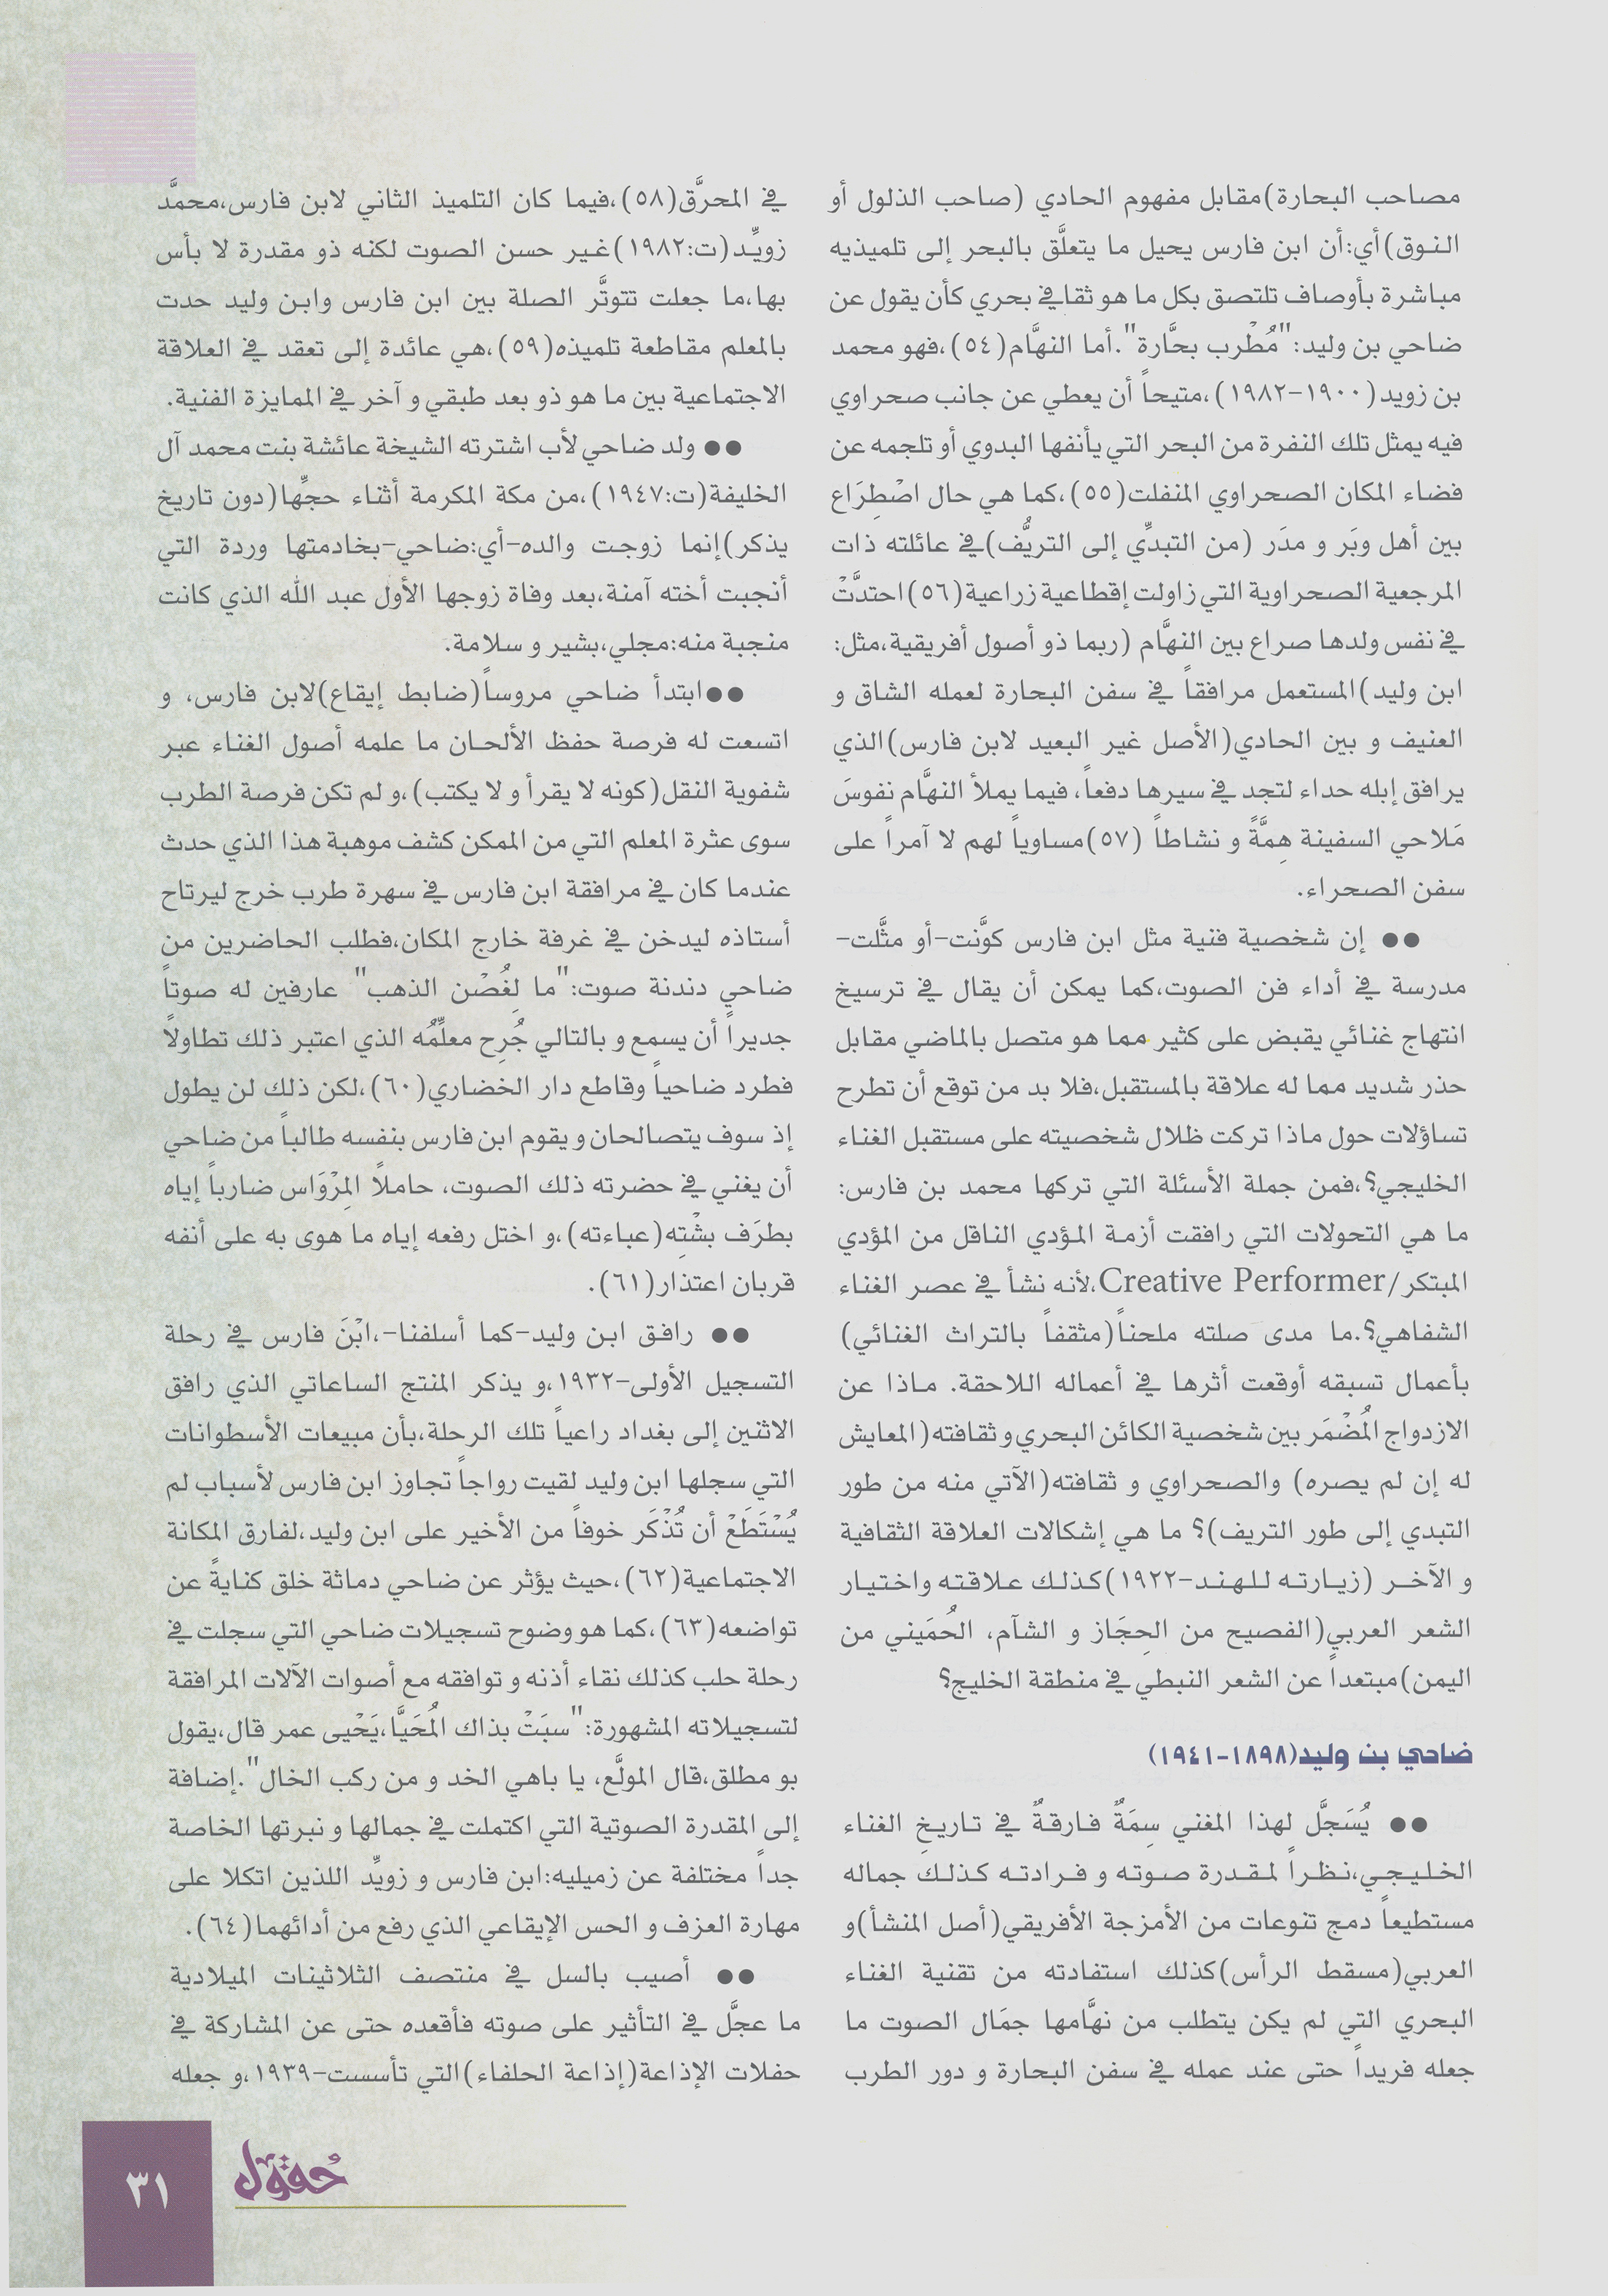 مصاحب البحارة)مقابل مفهوم الحادي (صاحب الذلول أو
النوق)أي:أن ابن فارس يحيل ما يتعلَّق بالبحر إلى تلميذيه
مباشرة بأوصاف تلتصق بكل ما هو ثقافي بحري كأن يقول عن
ضاحي بن وليد:"مُطْرب بحَّارة".أما النهَّام(٥٤)،فهو محمد
بن زويد(١٩٠٠-١٩٨٢)،متيحاً أن يعطي عن جانب صحراوي
فيه يمثل تلك النفرة من البحر التي يأنفها البدوي أو تلجمه عن
فضاء المكان الصحراوي المنفلت(٥٥)،كما هي حال اضْطِرَاع
بين أهل وبَر و مدَر (من التبدِّي إلى التريُّف)في عائلته ذات
المرجعية الصحراوية التي زاولت إقطاعية زراعية(٥٦)احتدَّتْ
في نفس ولدها صراع بين النهَّام (ربما ذو أصول أفريقية،مثل:
ابن وليد)المستعمل مرافقاً في سفن البحارة لعمله الشاق و
العنيف و بين الحادي(الأصل غير البعيد لابن فارس)الذي
يرافق إبله حداء لتجد في سيرها دفعاً، فيما يملأ النهَّام نفوسَ
مَلاحي السفينة هِمَّةً و نشاطاً (٥٧)مساوياً لهم لا آمراً على
سفن الصحراء.
●● إن شخصية فنية مثل ابن فارس كوَّنت-أو مثَّلت-
مدرسة في أداء فن الصوت،كما يمكن أن يقال في ترسيخ
انتهاج غنائي يقبض على كثير مما هو متصل بالماضي مقابل
حذر شديد مما له علاقة بالمستقبل،فلا بد من توقع أن تطرح
تساؤلات حول ماذا تركت ظلال شخصيته على مستقبل الغناء
الخليجي؟،فمن جملة الأسئلة التي تركها محمد بن فارس:
ما هي التحولات التي رافقت أزمة المؤدي الناقل من المؤدي
المبتكر/Creative Performer،لأنه نشأ في عصر الغناء
الشفاهي؟.ما مدى صلته ملحناً(مثقفاً بالتراث الغنائي)
بأعمال تسبقه أوقعت أثرها في أعماله اللاحقة. ماذا عن
الازدواج المُضْمَر بين شخصية الكائن البحري و ثقافته(المعايش
له إن لم يصره) والصحراوي و ثقافته(الآتي منه من طور
التبدي إلى طور التريف)؟ ما هي إشكالات العلاقة الثقافية
و الآخر (زيارته للهند-١٩٢٢)كذلك علاقته واختيار
الشعر العربي(الفصيح من الحِجَاز و الشآم، الحُمَيني من
اليمن)مبتعداً عن الشعر النبطي في منطقة الخليج؟
ضاحي بن وليد(١٨٩٨-١٩٤١)
●● يُسَجَّل لهذا المغني سِمَةٌ فارقةٌ في تاريخِ الغناء
الخليجي،نظراً لمقدرة صوته و فرادته كذلك جماله
مستطيعاً دمج تنوعات من الأمزجة الأفريقي(أصل المنشأ)و
العربي(مسقط الرأس)كذلك استفادته من تقنية الغناء
البحري التي لم يكن يتطلب من نهَّامها جمَال الصوت ما
جعله فريداً حتى عند عمله في سفن البحارة و دور الطرب
في المحرَّق(٥٨)،فيما كان التلميذ الثاني لابن فارس،محمَّد
زويِّد(ت:١٩٨٢)غير حسن الصوت لكنه ذو مقدرة لا بأس
بها،ما جعلت تتوتَّر الصلة بين ابن فارس وابن وليد حدت
بالمعلم مقاطعة تلميذه(٥٩)،هي عائدة إلى تعقد في العلاقة
الاجتماعية بين ما هو ذو بعد طبقي و آخر في الممايزة الفنية.
●● ولد ضاحي لأب اشترته الشيخة عائشة بنت محمد آل
الخليفة(ت:١٩٤٧)،من مكة المكرمة أثناء حجِّها(دون تاريخ
يذكر)إنما زوجت والده-أي:ضاحي-بخادمتها وردة التي
أنجبت أخته آمنة،بعد وفاة زوجها الأول عبد الله الذي كانت
منجبة منه:مجلي،بشير و سلامة.
●●ابتدأ ضاحي مروساً(ضابط إيقاع)لابن فارس، و
اتسعت له فرصة حفظ الألحان ما علمه أصول الغناء عبر
شفوية النقل(كونه لا يقرأ و لا يكتب)،و لم تكن فرصة الطرب
سوى عثرة المعلم التي من الممكن كشف موهبة هذا الذي حدث
عندما كان في مرافقة ابن فارس في سهرة طرب خرج ليرتاح
أستاذه ليدخن في غرفة خارج المكان،فطلب الحاضرين من
ضاحي دندنة صوت:"ما لِغُصْن الذهب" عارفين له صوتاً
جديراً أن يسمع و بالتالي جُرِح معلِّمُه الذي اعتبر ذلك تطاولاً
فطرد ضاحياً وقاطع دار الخضاري(٦٠)،لكن ذلك لن يطول
إذ سوف يتصالحان و يقوم ابن فارس بنفسه طالباً من ضاحي
أن يغني في حضرته ذلك الصوت، حاملاً المِرْوَاس ضارباً إياه
بطرَف بشْتِه(عباءته)،و اختل رفعه إياه ما هوى به على أنفه
قربان اعتذار(٦١).
●● رافق ابن وليد-كما أسلفنا-،ابْنَ فارس في رحلة
التسجيل الأولى-١٩٣٢،و يذكر المنتج الساعاتي الذي رافق
الاثنين إلى بغداد راعياً تلك الرحلة،بأن مبيعات الأسطوانات
التي سجلها ابن وليد لقيت رواجاً تجاوز ابن فارس لأسباب لم
يُسْتَطَعْ أن تُذْكَر خوفاً من الأخير على ابن وليد،لفارق المكانة
الاجتماعية(٦٢)،حيث يؤثر عن ضاحي دماثة خلق كنايةً عن
تواضعه(٦٣)،كما هو وضوح تسجيلات ضاحي التي سجلت في
رحلة حلب كذلك نقاء أذنه و توافقه مع أصوات الآلات المرافقة
لتسجيلاته المشهورة:"سبَتْ بذاك المُحَيَّا،يَحْيى عمر قال،يقول
بو مطلق،قال المولَّع، يا باهي الخد و من ركب الخال".إضافة
إلى المقدرة الصوتية التي اكتملت في جمالها و نبرتها الخاصة
جداً مختلفة عن زميليه:ابن فارس و زويِّد اللذين اتكلا على
مهارة العزف و الحس الإيقاعي الذي رفع من أدائهما(٦٤).
●● أصيب بالسل في منتصف الثلاثينات الميلادية
ما عجَّل في التأثير على صوته فأقعده حتى عن المشاركة في
حفلات الإذاعة(إذاعة الحلفاء)التي تأسست-١٩٣٩،و جعله
حقول
٣١